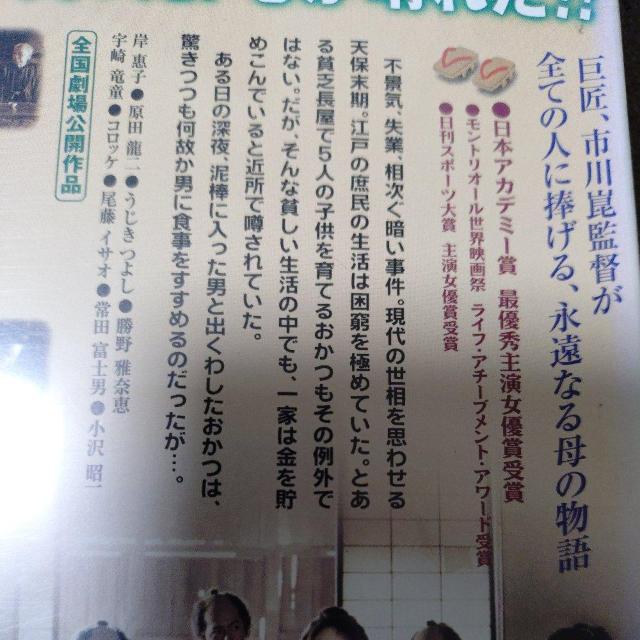 晴れた!!
巨匠、市川崑監督が
全ての人に捧げる、永遠なる母の物語
●日本アカデミー賞 最優秀主演女優賞受賞
●モントリオール世界映画祭 ライフ・アチーブメント・アワード受賞
●日刊スポーツ大賞 主演女優賞受賞
不景気、失業、相次ぐ暗い事件。現代の世相を思わせる
天保末期。江戸の庶民の生活は困窮を極めていた。とあ
る貧乏長屋で5人の子供を育てるおかつもその例外で
はない。だが、そんな貧しい生活の中でも、一家は金を貯
めこんでいると近所で噂されていた。
ある日の深夜、泥棒に入った男と出くわしたおかつは、
驚きつつも何故か男に食事をすすめるのだったが…。
岸 恵子●原田 龍二●うじき つよし●勝野 雅奈恵
宇崎 竜童●コロッケ●尾藤 イサオ●常田 富士男●小沢 昭一
全国劇場公開作品